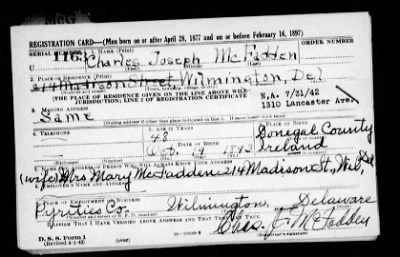 McG
REGISTRATION CARD—(Men born on or after April 28, 1877 and on or before February 16, 1897)
SERIAL NUMBER 1. NAME (Print) ORDER NUMBER
Charles Joseph McFadden
2. PLACE OF RESIDENCE (Print)
214 Madison Street Wilmington, Del
(THE PLACE OF RESIDENCE GIVEN ON THE LINE ABOVE WILL
JURISDICTION; LINE 2 OF REGISTRATION CERTIFICATE
N.A. 7/31/42
1310 Lancaster Ave.
3. MAILING ADDRESS
Same
4. TELEPHONE 5. AGE IN YEARS 6. PLACE OF BIRTH
48 Donegal County
DATE OF BIRTH
Ireland
(Exchange) (Number)
7. NAME AND ADDRESS OF PERSON WHO WILL ALWAYS KNOW YOUR ADDRESS
(wife) Mrs Mary McFadden 214 Madison St., Wil, Del
8. EMPLOYER'S NAME AND ADDRESS
Pyrites Co.
9. PLACE OF EMPLOYMENT OR BUSINESS
Wilmington, Delaware
I AFFIRM THAT I HAVE VERIFIED ABOVE ANSWERS AND THAT THEY ARE TRUE.
Chas. J. McFadden
D. S. S. Form 1
(Revised 4-1-42) (over)